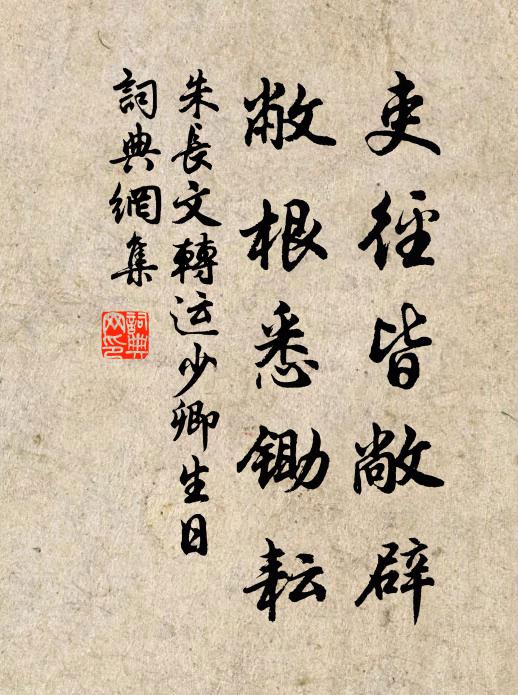 吏徑皆敞辟
敝根悉鋤耘
朱長文轉运少卿生日
詞典網集
詞典
网印